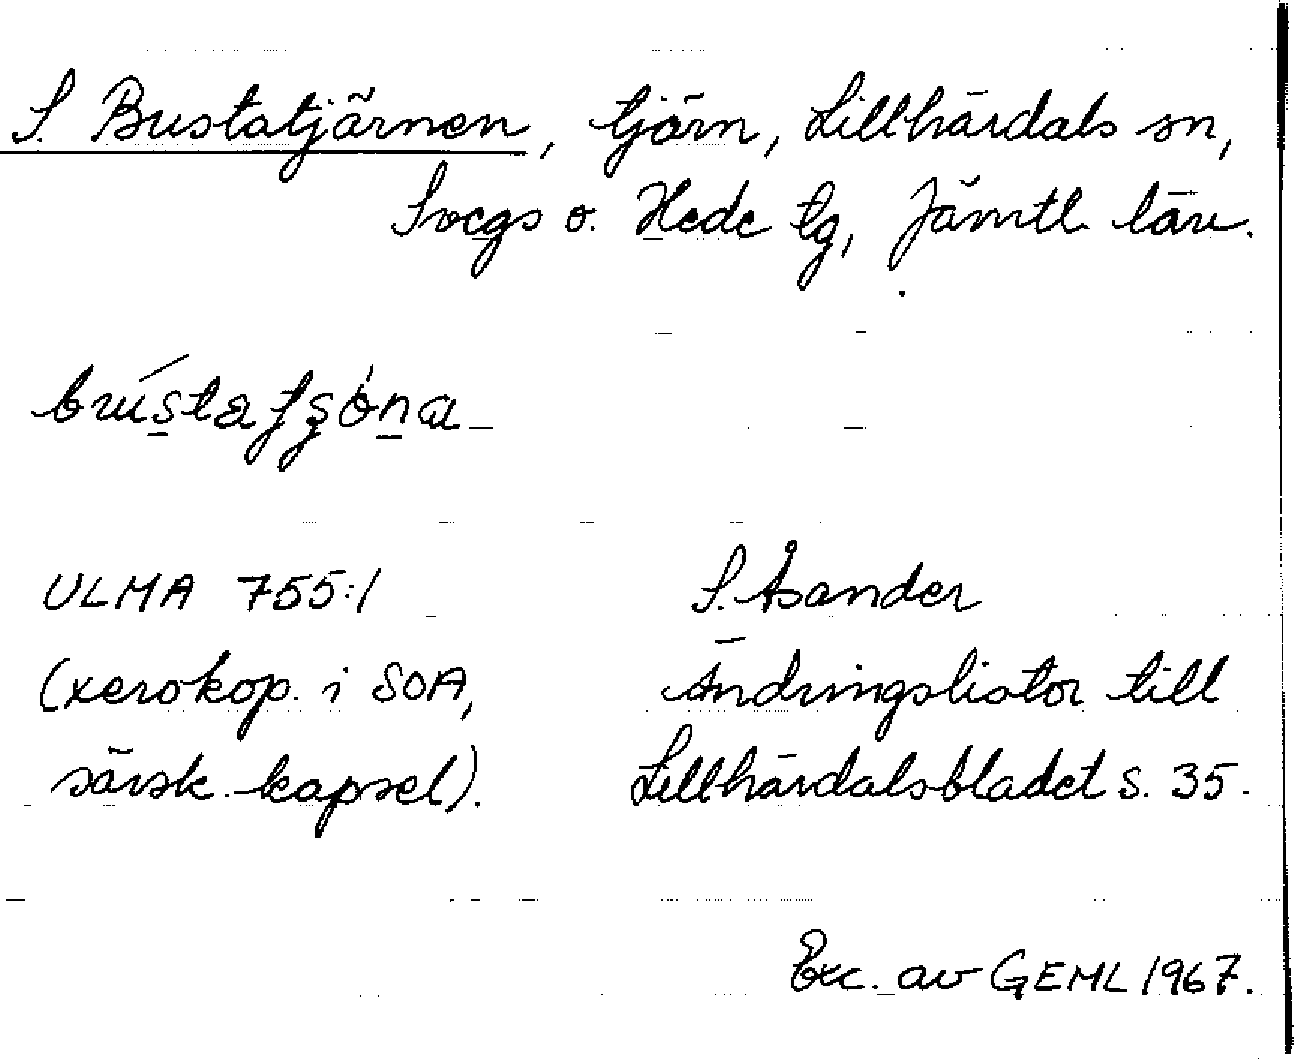 S. Bustatjärnen, tjärn, Lillhärdals sn,
Svegs o. Hede tg, Jämtl. län.
ULMA 755:1
(xerokop. i SOA,
särsk. kapsel).
S. Åsander
Ändringslistor till
Lillhärdalsbladet s. 35.
Exc. av GEML 1967.